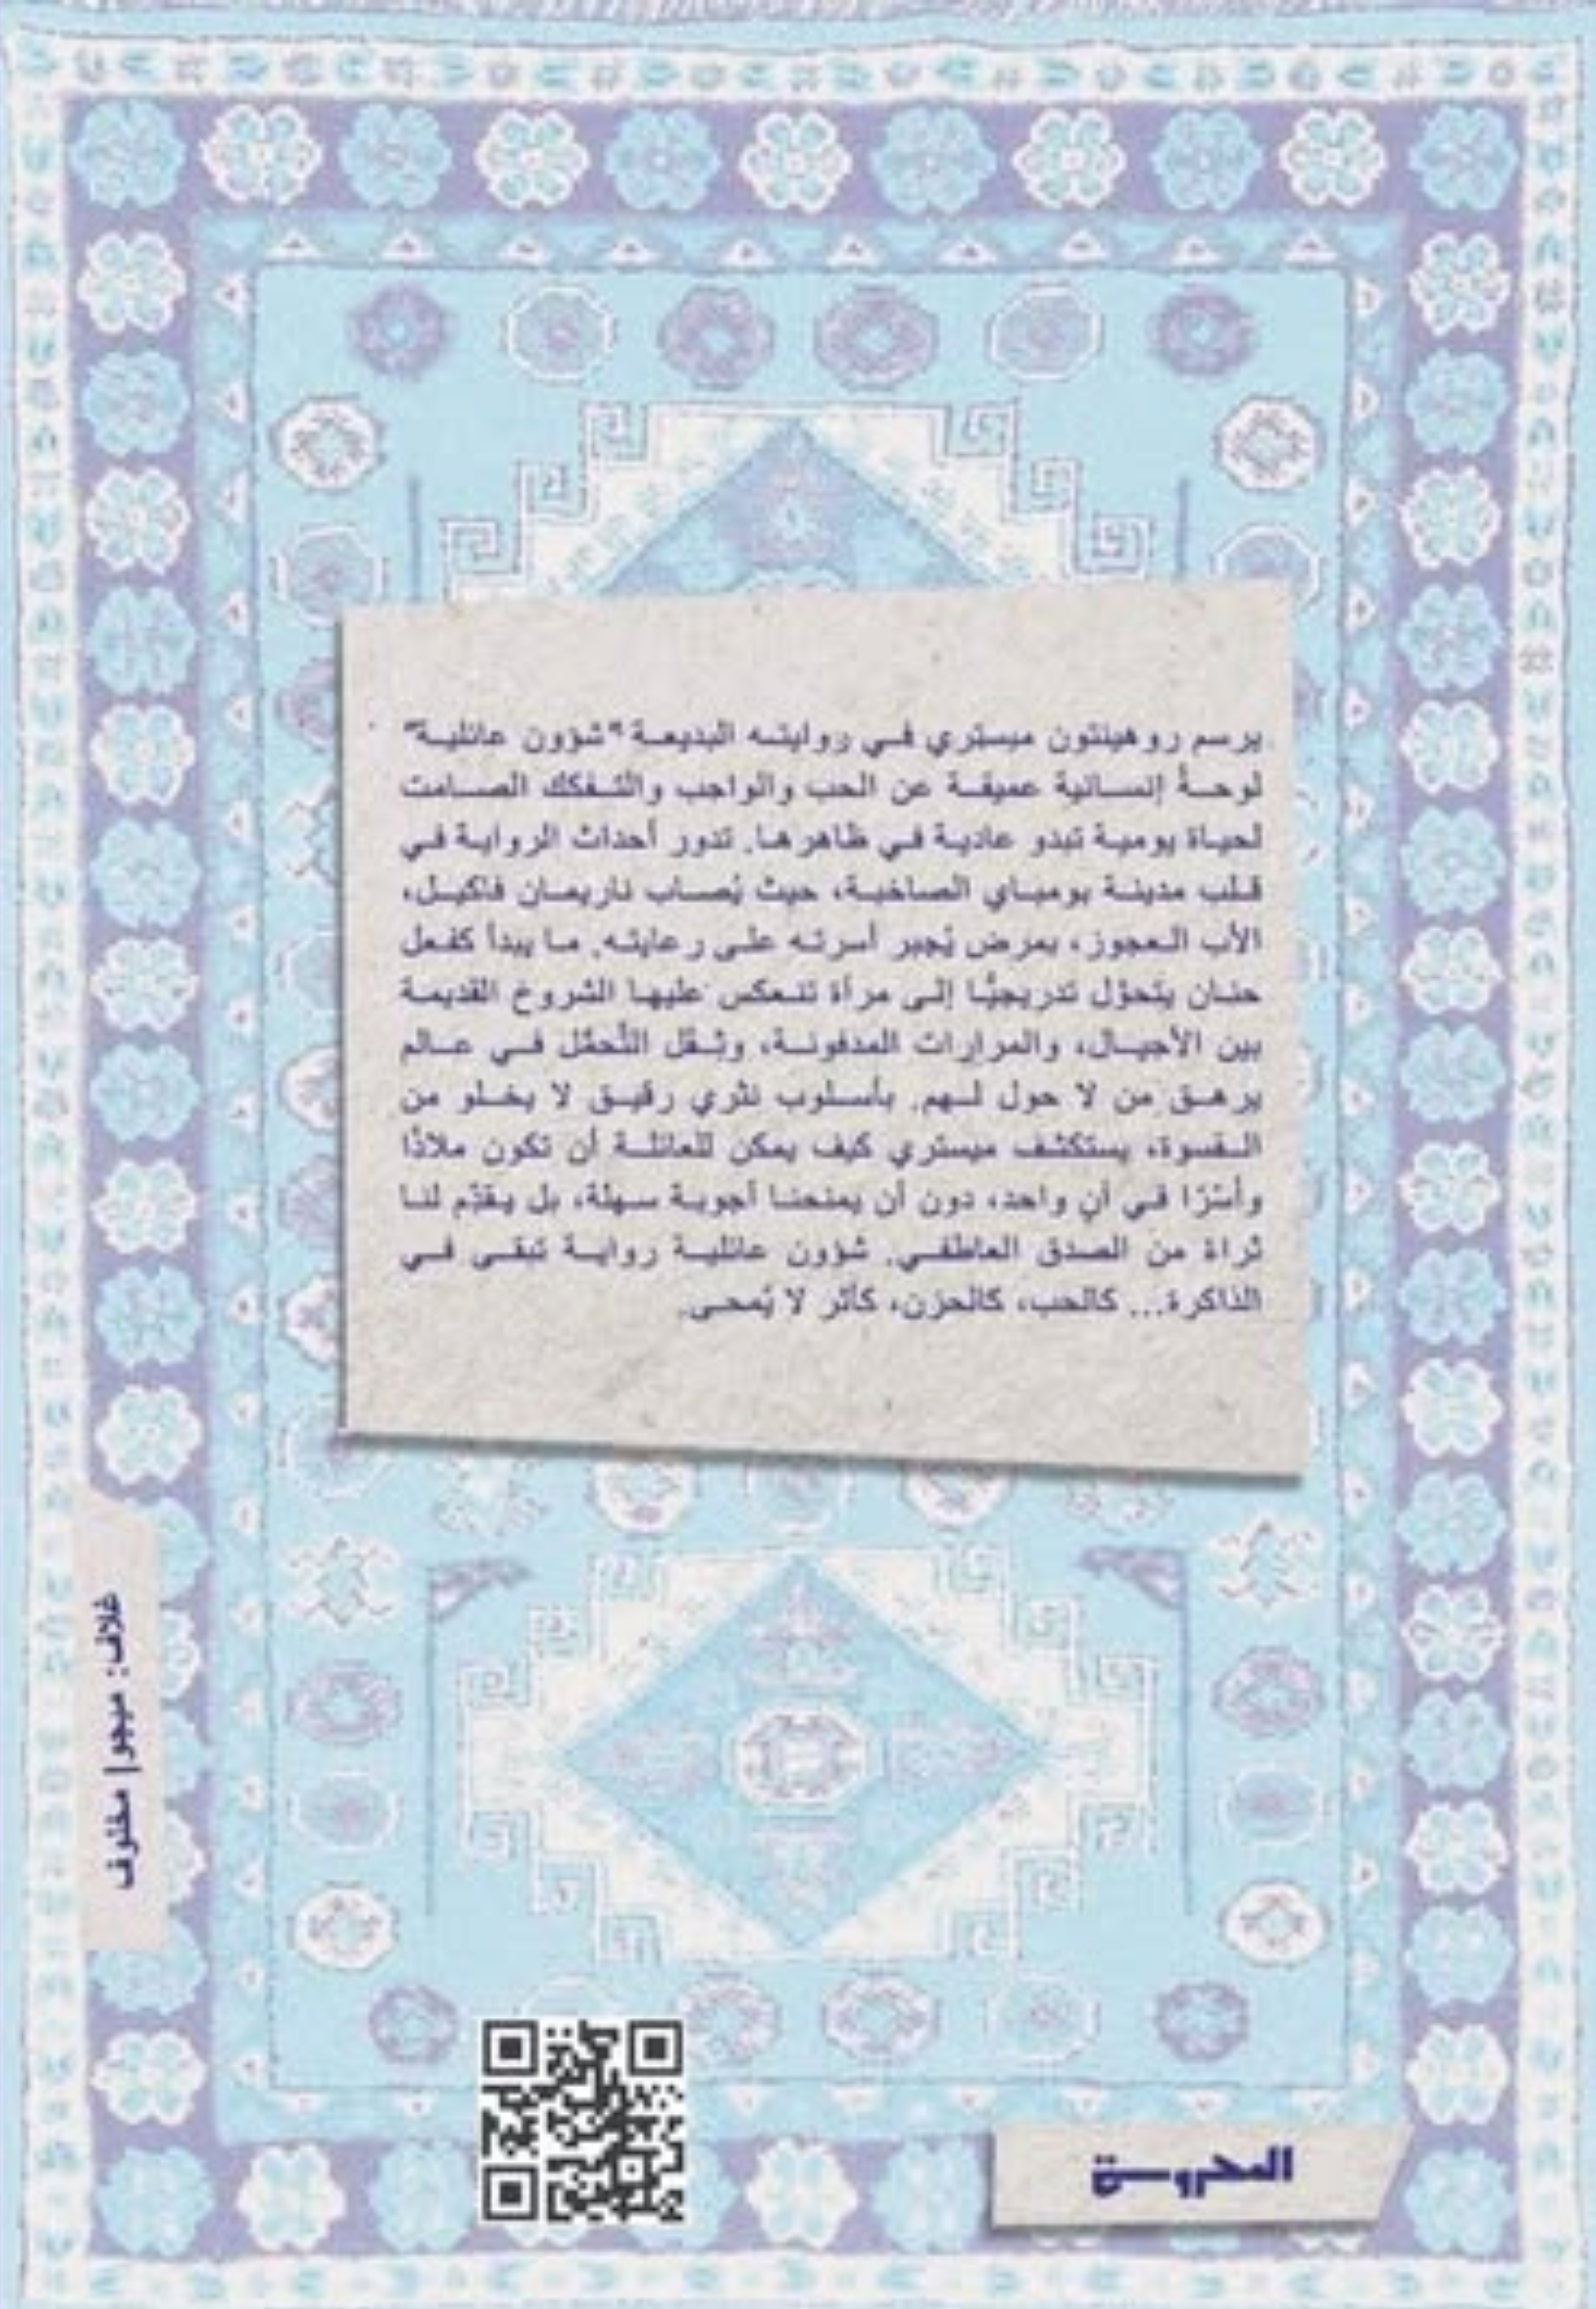 يرسم روهينتون ميستري في روايته البديعة "شؤون عائلية"
لوحةً إنسانية عميقة عن الحب والواجب والتفكك الصامت
لحياة يومية تبدو عادية في ظاهرها. تدور أحداث الرواية في
قلب مدينة بومباي الصاخبة، حيث يُصاب ناريمان فاكيل،
الأب العجوز، بمرض يُجبر أسرته على رعايته. ما يبدأ كفعل
حنان يتحوّل تدريجيًّا إلى مرآة تنعكس عليها الشروخ القديمة
بين الأجيال، والمرارات المدفونة، وثِقَل التَّحمُّل في عالم
يرهق من لا حول لهم. بأسلوب نثري رقيق لا يخلو من
القسوة، يستكشف ميستري كيف يمكن للعائلة أن تكون ملاذًا
وأسْرًا في آنٍ واحد، دون أن يمنحنا أجوبة سهلة، بل يقدّم لنا
ثراءً من الصدق العاطفي. شؤون عائلية رواية تبقى في
الذاكرة... كالحب، كالحزن، كأثر لا يُمحى.
غلاف: ميجو | مخلوف
المحروسة